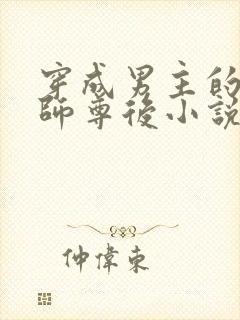 穿成男主的
師尊後小說
仲偉東